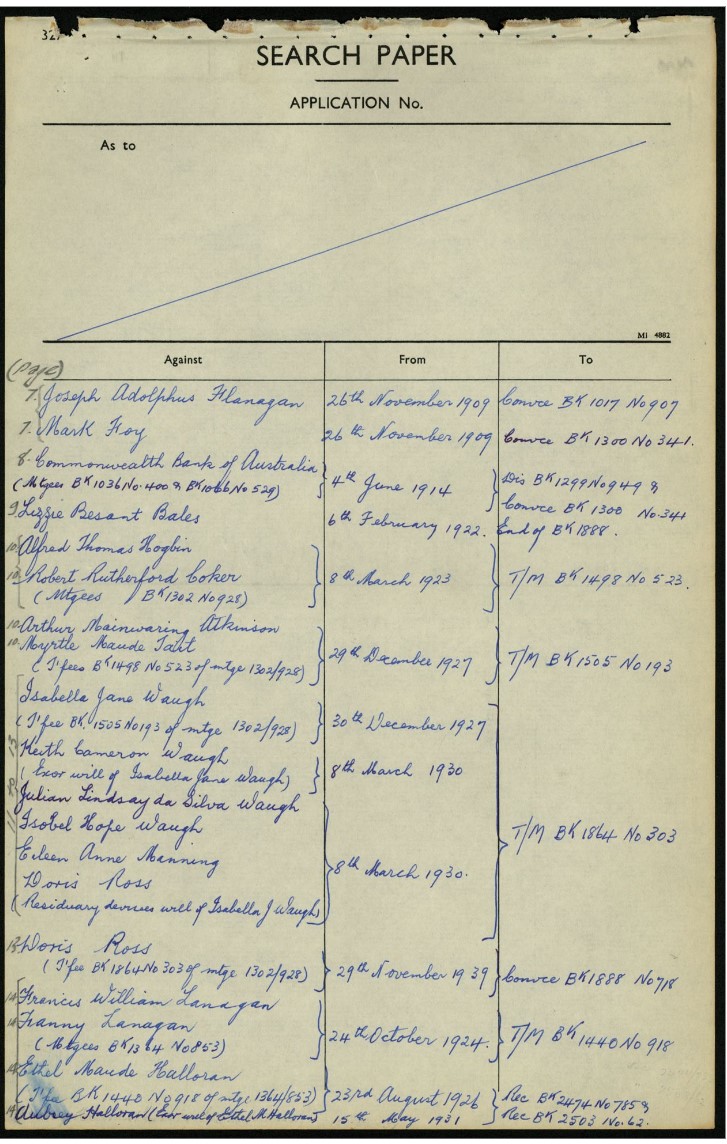 327
SEARCH PAPER
APPLICATION No.
As to
MI 4882
Against From To
(Page)
7. Joseph Adolphus Flanagan 26th November 1909 Convce BK 1017 No 907
7. Mark Foy 26th November 1909 Convce BK 1300 No 341.
8. Commonwealth Bank of Australia
(Mtgees BK 1036 No. 400 & BK 1066 No 529) 4th June 1914 Dis BK 1299 No 949 &
Convce BK 1300 No. 341
9. Lizzie Besant Bales 6th February 1922. End of BK 1888.
10. Alfred Thomas Hogbin
10. Robert Rutherford Coker 8th March 1923 T/M BK 1498 No 523.
(Mtgees BK 1302 No 928)
10. Arthur Mainwaring Atkinson
10. Myrtle Maude Tait
(T'fees BK 1498 No 523 of mtge 1302/928) 29th December 1927 T/M BK 1505 No 193
Isabella Jane Waugh
(T'fee BK. 1505 No 193 of mtge 1302/928) 30th December 1927
Keith Cameron Waugh
(Exor will of Isabella Jane Waugh) 8th March 1930
Julian Lindsay da Silva Waugh
Isobel Hope Waugh T/M BK 1864 No 303
Eileen Anne Manning
Doris Ross 8th March 1930.
(Residuary devisees will of Isabella J Waugh)
13. Doris Ross
(T'fee BK 1864 No 303 of mtge 1302/928) 29th November 1939 Convce BK 1888 No 718
14. Francis William Lanagan
14. Fanny Lanagan
(Mtgees BK 1364 No 853) 24th October 1924. T/M BK 1440 No 918
14. Ethel Maude Halloran
(T'fee BK 1440 No 918 of mtge 1364/853) 23rd August 1926 Rec BK 2474 No 785 &
14. Aubrey Halloran (Exor will of Ethel M Halloran) 15th May 1931 Rec BK 2503 No. 62.